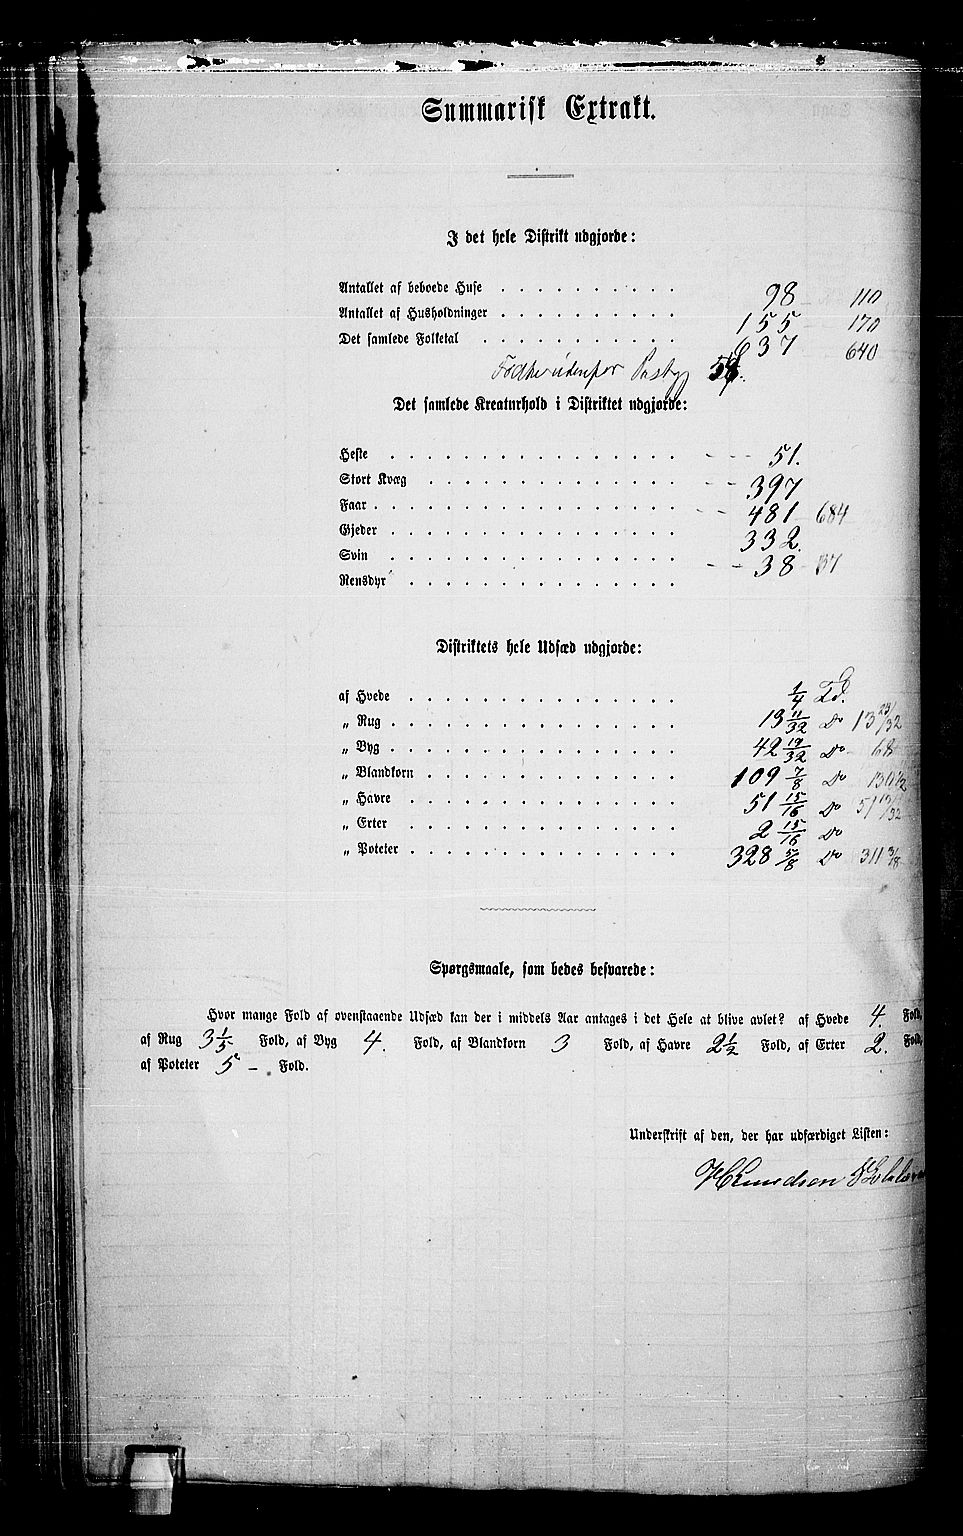 Summarisk Extrakt.
I det hele Distrikt udgjorde:
Antallet af beboede Huse . . . . . . . . . . 98 110
Antallet af Husholdninger . . . . . . . . . . 155 170
Det samlede Folketal . . . . . . . . . . . 637 640
Fødte udenfor 58.
Det samlede Kreaturhold i Distriktet udgjorde:
Heste . . . . . . . . . . . . . . . . 51.
Stort Kvæg . . . . . . . . . . . . . . 397
Faar . . . . . . . . . . . . . . . . . 481 684
Gjeder . . . . . . . . . . . . . . . . 332.
Svin . . . . . . . . . . . . . . . . 38 - 37
Rensdyr . . . . . . . . . . . . . . .
Distriktets hele Udsæd udgjorde:
af Hvede . . . . . . . . . . . . . . . 1/4 Td.
„ Rug . . . . . . . . . . . . . . . . 13 11/32 Do 13 23/32
„ Byg . . . . . . . . . . . . . . . . 42 19/32 Do 68
„ Blandkorn . . . . . . . . . . . . . . 109 7/8 Do 130 1/2
„ Havre . . . . . . . . . . . . . . . 51 15/16 Do
„ Erter . . . . . . . . . . . . . . . 2 15/16 Do
„ Poteter . . . . . . . . . . . . . . . 328 5/8 Do 311 3/8
Spørgsmaale, som bedes besvarede:
Hvor mange Fold af ovenstaaende Udsæd kan der i middels Aar antages i det Hele at blive avlet? af Hvede 4. Fold,
af Rug 3 1/5 Fold, af Byg 4. Fold, af Blandkorn 3 Fold, af Havre 2 1/2 Fold, af Erter 2. Fold,
af Poteter 5 – Fold.
Underskrift af den, der har udfærdiget Listen:
H Knudsen